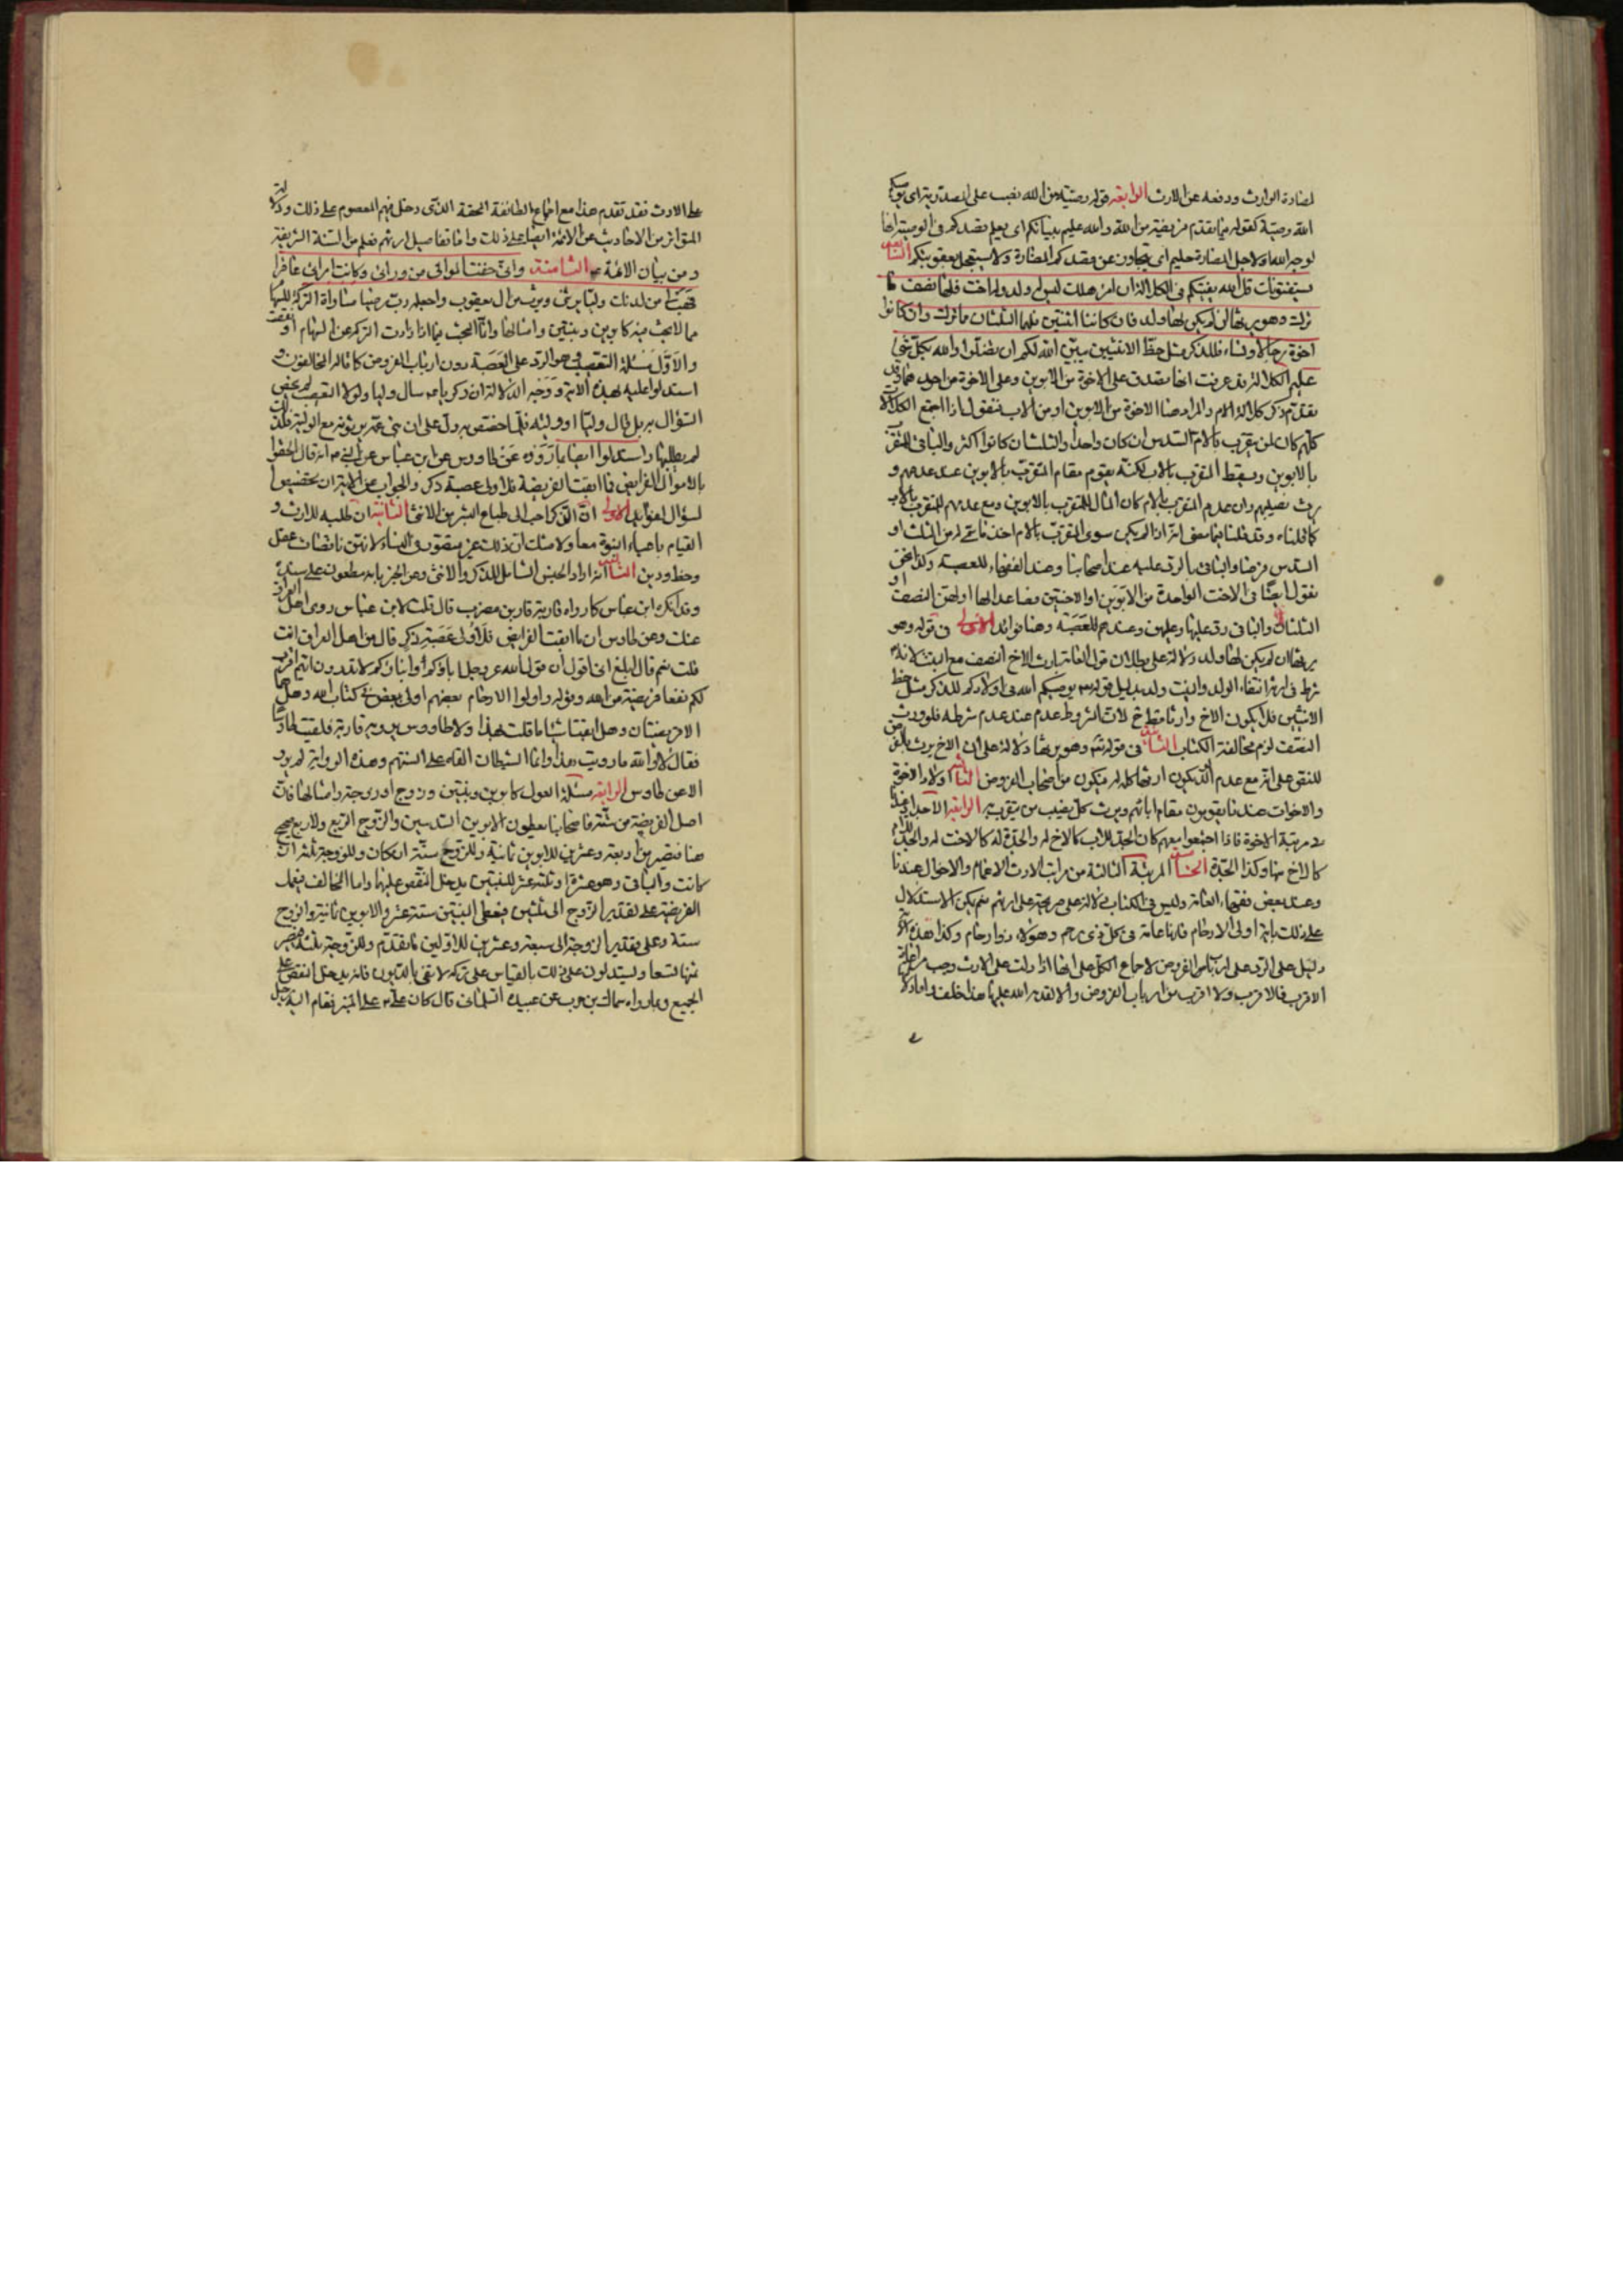 لمضادة الوارث ودفعه عن الارث الرابعة قوله وصية من الله نصب على المصدرية اى يوصيكم
الله وصية كقوله فيما تقدم فريضة من الله والله عليم بنياتكم اى يعلم قصدكم فى الوصية انها
لوجه الله او لاجل المضارة حليم اى يتجاوز عن قصدكم المضارة ولا يستعجل بعقوبتكم السابعة
يستفتونك قل الله يفتيكم فى الكلالة ان امرؤ هلك ليس له ولد وله اخت فلها نصف ما
ترك وهو يرثها ان لم يكن لها ولد فان كانتا اثنتين فلهما الثلثان مما ترك وان كانوا
اخوة رجالا ونساء فللذكر مثل حظ الانثيين يبين الله لكم ان تضلوا والله بكل شئ
عليم الكلالة قد عرفت انها تصدق على الاخوة من الابوين وعلى الاخوة من احدهما وقد
تقدم ذكر كلالة الام والمراد هنا الاخوة من الابوين او من الاب فنقول اذا اجتمع الكلالات
كلهم كان لمن يتقرب بالام السدس ان كان واحدا والثلث ان كانوا اكثر والباقى للمتقرب
بالابوين ويسقط المتقرب بالاب لكنه يقوم مقام المتقرب بالابوين عند عدمهم و
يرث نصيبهم وان عدم المتقرب بالام كان المال للمتقرب بالابوين ومع عدمهم للمتقرب بالاب
كما قلناه وقد قلنا فيما مضى انه اذا لم يكن سوى المتقرب بالام اخذ ما بقى له من الثلث او
السدس فرضا والباقى بالرد عليه عند اصحابنا وعند الفقهاء للعصبة وكذا نحن
نقول ايضا فى الاخت الواحدة من الابوين او الاختين فصاعدا لها او لهن النصف او
الثلثان والباقى رد عليها وعليهن وعندهم للعصبة وهنا فوائد الاولى فى قوله وهو
يرثها ان لم يكن لها ولد دلالة على بطلان قول العامة بارث الاخ النصف مع البنت لانه
شرط فى ارثه انتفاء الولد والبنت ولد بدليل قوله يوصيكم الله فى اولادكم للذكر مثل حظ
الانثيين فلا يكون الاخ وارثا مع البنت لان المشروط عدم عند عدم شرطه فلو ورث
النصف لزم مخالفة الكتاب الثانية فى قوله تعالى وهو يرثها دلالة على ان الاخ يرث بالفرض
للنص على انه مع عدم الولد يكون ارثها كله له فيكون من اصحاب الفروض الثالثة اولاد الاخوة
والاخوات عندنا يقومون مقام ابائهم ويرث كل نصيب من يتقرب به الرابعة الاجداد عندنا
فى مرتبة الاخوة فاذا اجتمعوا معهم كان الجد للاب كالاخ له والجدة له كالاخت له والجد للام
كالاخ منها وكذا الجدة الخامسة المرتبة الثالثة من مراتب الارث الاعمام والاخوال عندنا
وعند بعض فقهاء العامة وليس فى الكتاب دلالة على صريحة على ارثهم نعم يمكن الاستدلال
على ذلك باية اولى الارحام فانها عامة فى كل ذى رحم وهؤلاء ذوا رحام وكذا هذه الاية
دليل على الرد على ارباب الفروض لاجماع الكل على انها اذا دلت على الارث وجب مراعاة
الاقرب فالاقرب ولا اقرب من ارباب الفروض والا لقدم الله عليها هذا خلف واما دلالة
على الارث فقد تقدم هذا مع اجماع الطائفة المحقة الذى دخل فيهم المعصوم على ذلك ودلالة
المتواتر من الاحاديث عن الائمة ايضا على ذلك واما تفاصيل ارثهم فعلم من السنة الشريفة
ومن بيان الائمة ع الثامنة وانى خفت الموالى من ورائى وكانت امراتى عاقرا
فهب لى من لدنك وليا يرثنى ويرث من ال يعقوب واجعله رب رضيا مساواة التركة للسهام
مما لابحث فيه كابوين وبنتين وامثالها وانما البحث فيما اذا زادت التركة عن السهام او نقصت
والاول مسئلة التعصيب هو الرد على العصبة دون ارباب الفروض كما قاله المخالفون و
استدلوا عليه بهذه الاية ووجه الدلالة ان زكريا ع سال وليا ولولا التعصيب لم يخص
السؤال به بل قال وليا او ولية فلما اختص به دل على ان بنى عمه يرثونه مع الولية فلذلك
لم يطلبها واستدلوا ايضا بما رووه عن طاووس عن ابن عباس عن النبى ص انه قال الحقوا
بالاموال الفرايض فما ابقت الفريضة فلاولى عصبة ذكر والجواب عن الاية ان تخصيص
لسؤال لفوايد الاولى ان الذكر احب الى طباع البشر من الانثى الثانية ان طلبه للارث و
القيام باعباء النبوة معا ولا شك ان ذلك غير متصور فى النساء لانهن ناقصات عقل
وحظ ودين الثالثة انه اراد الجنس الشامل للذكر والانثى وعن الخبر بانه مطعون على سنده
وقد انكره ابن عباس كما رواه قاربة قارية بن مضرب قال قلت لابن عباس روى اهل العراق
عنك وعن طاوس ان ما ابقت الفرايض فلاولى عصبة ذكر قال من اهل العراق انت
قلت نعم قال ابلغ انى اقول ان قول الله عز وجل اباؤكم وابناؤكم لا تدرون ايهم اقرب
لكم نفعا فريضة من الله وقوله واولوا الارحام بعضهم اولى ببعض فى كتاب الله وهل هما
الا فريضتان وهل ابقتا شيئا ما قلت هذا ولا طاووس يرويه قاربة فلقيت طاوسا
فقال لا والله ما رويت هذا وانما الشيطان القاه على السنتهم وهذه الرواية لم ترد
الا عن طاوس الرابعة مسئلة العول كابوين وبنتين وزوج او زوجة وامثالها فان
اصل الفريضة من ستة فاصحابنا يعطون الابوين السدسين والزوج الربع ولا ربع صحيح
هنا فتصير من اربعة وعشرين للابوين ثمانية وللزوج ستة ان كان وللزوجة ثلثة ان
كانت والباقى وهو عشرة او ثلثة عشر للبنتين يدخل النقص عليهما واما المخالف فيعمل
الفريضة على تقدير الزوج الى ثلثين فيعطى البنتين ستة عشر والابوين ثمانية والزوج
ستة وعلى تقدير الزوجة الى سبعة وعشرين للاولين ما تقدم وللزوجة ثلثة فيصير
ثمنها تسعا ويستدلون على ذلك بالقياس على تركة لا تفى بالديون فانه يدخل النقص على
الجميع وبما رواه سماك بن حرب عن عبيدة السلمانى قال كان على ع على المنبر فقام اليه رجل